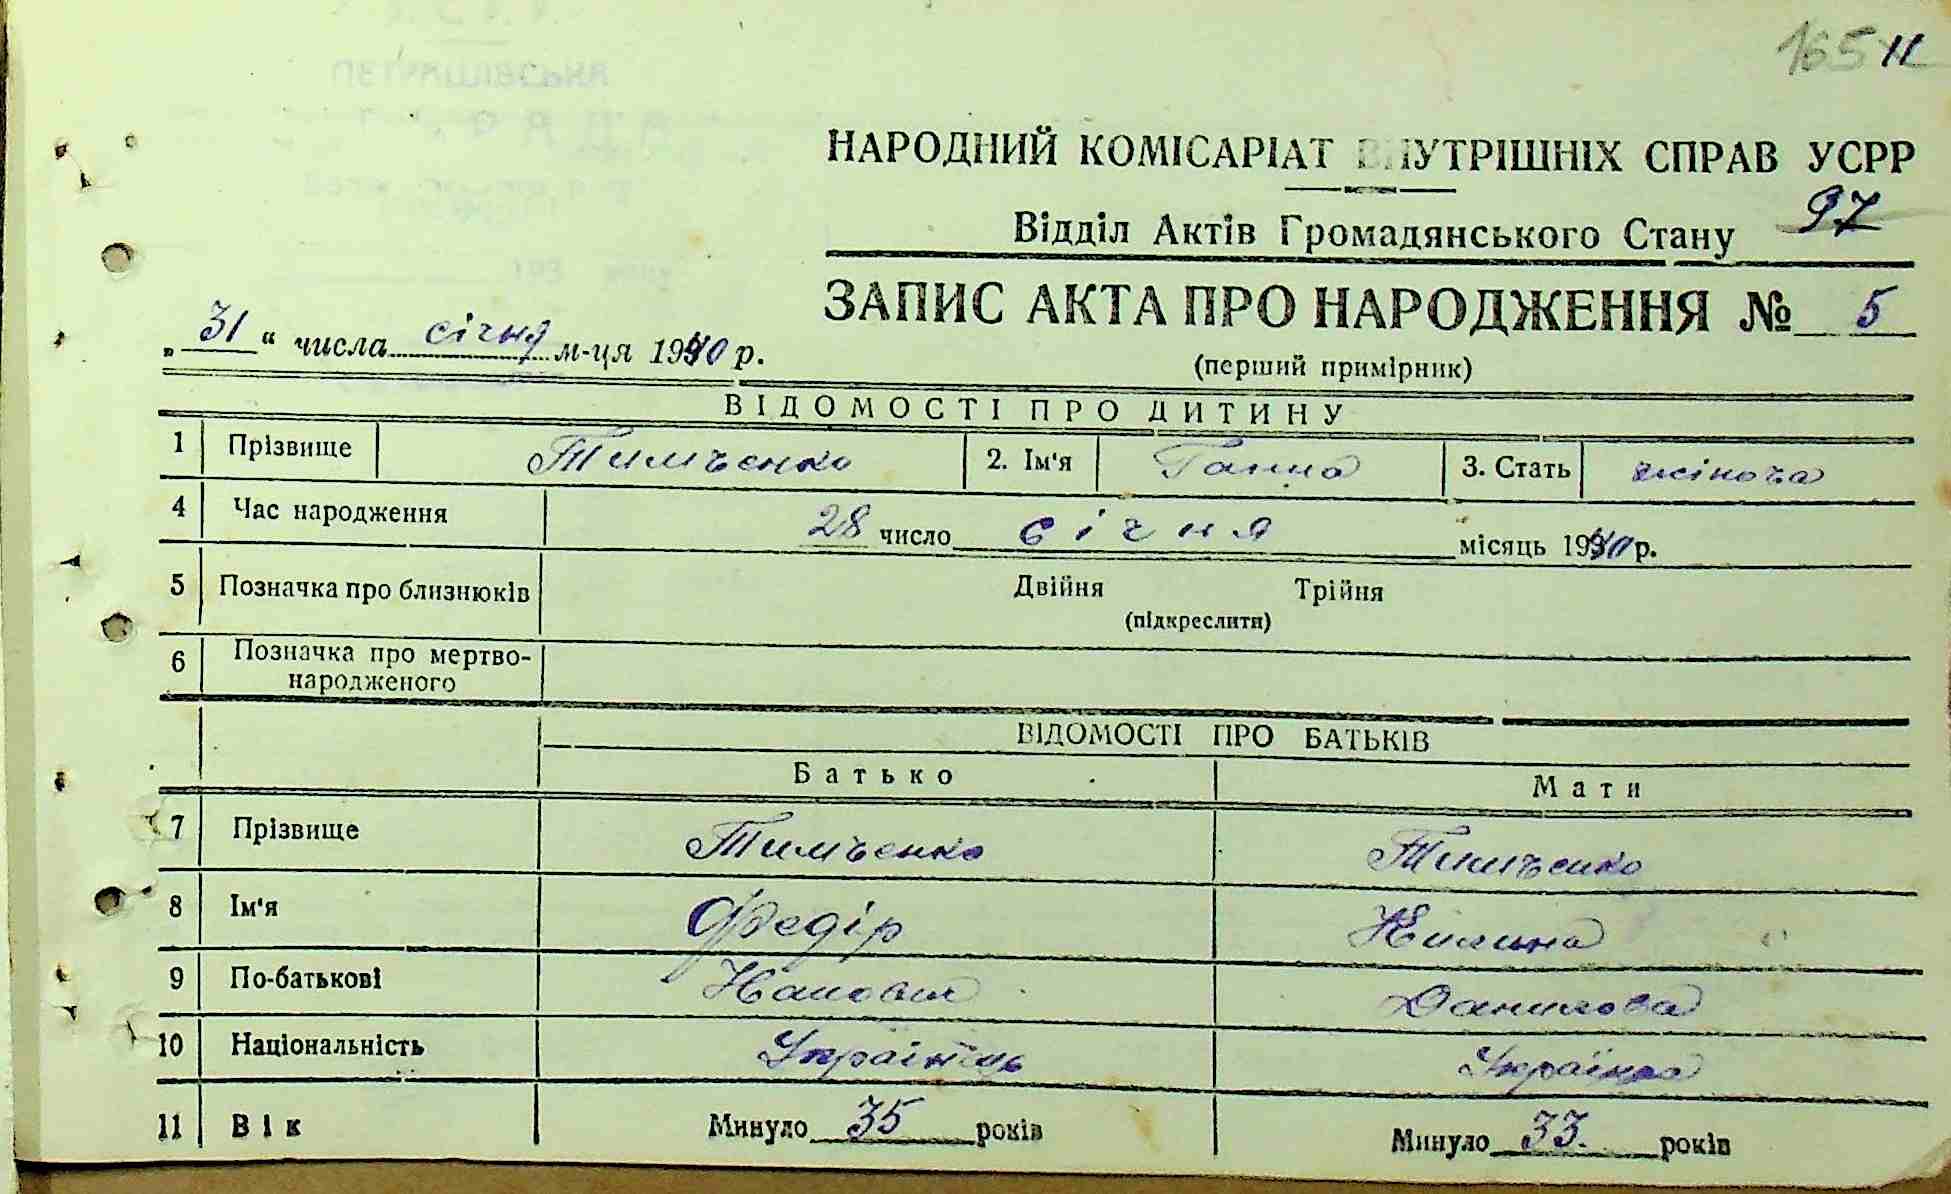 165 11
НАРОДНИЙ КОМІСАРІАТ ВНУТРІШНІХ СПРАВ УСРР
Відділ Актів Громадянського Стану 97
ЗАПИС АКТА ПРО НАРОДЖЕННЯ № 5
(перший примірник)
„ 31 “ числа січня м-ця 1940 р.
ВІДОМОСТІ ПРО ДИТИНУ
1 Прізвище Тимченко 2. Ім'я Ганна 3. Стать жіноча
4 Час народження 28 число січня місяць 1940 р.
5 Позначка про близнюків Двійня Трійня
(підкреслити)
6 Позначка про мертво-
народженого
ВІДОМОСТІ ПРО БАТЬКІВ
Батько Мати
7 Прізвище Тимченко Тимченко
8 Ім'я Федір Килина
9 По-батькові Данилова
10 Національність Українець Українка
11 Вік Минуло 35 років Минуло 33 років